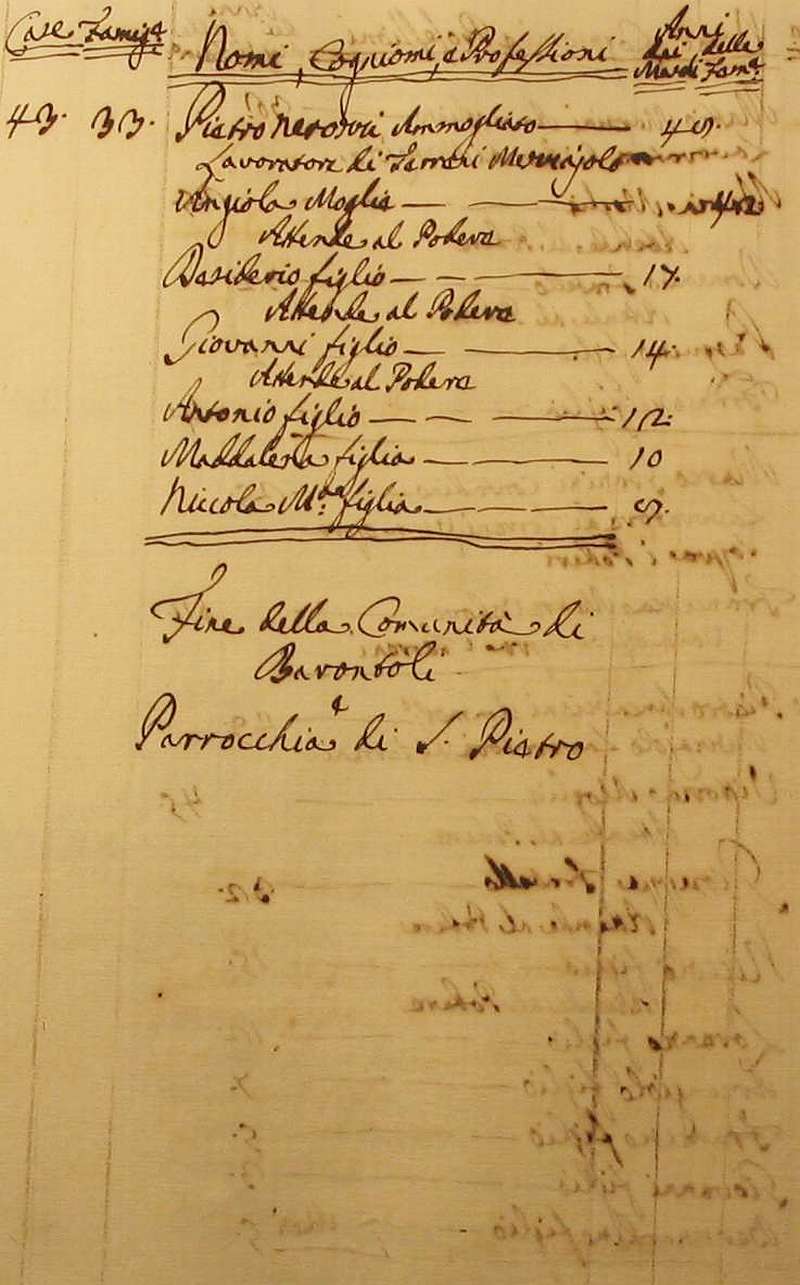 Case Famig.e Nomi, Cognomi, e Professioni Anni dei Mardi delle Fam.e
43. 33. Pietro Ammogliato 49.
Lavoratore di Terreni
Angiola Moglie 42
Attende al Podere
Desiderio figlio 17.
Attende al Podere
Giovanni figlio 14.
Attende al Podere
Antonio figlio 12.
Maddalena figlia 10
Niccola M.a figlia 9.
Fine della Comunità di
Barontoli
e
Parrocchia di S. Pietro